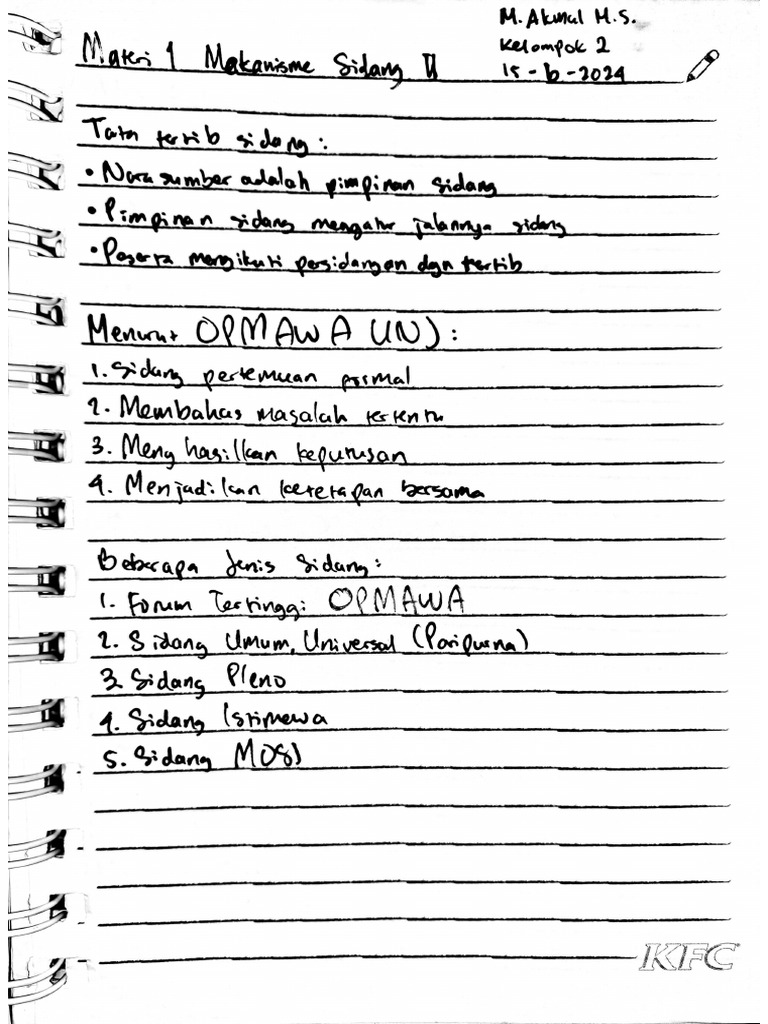 M. Akmal H.S.
Kelompok 2
15-6-2024
Materi 1 Mekanisme Sidang II
Tata tertib sidang:
• Narasumber adalah pimpinan sidang
• Pimpinan sidang mengatur jalannya sidang
• Peserta mengikuti persidangan dgn tertib
Menurut OPMAWA UNJ:
1. Sidang pertemuan formal
2. Membahas masalah tertentu
3. Menghasilkan keputusan
4. Menjadikan ketetapan bersama
Beberapa Jenis Sidang:
1. Forum Tertinggi OPMAWA
2. Sidang Umum, Universal (Paripurna)
3. Sidang Pleno
4. Sidang Istimewa
5. Sidang MOSI
KFC